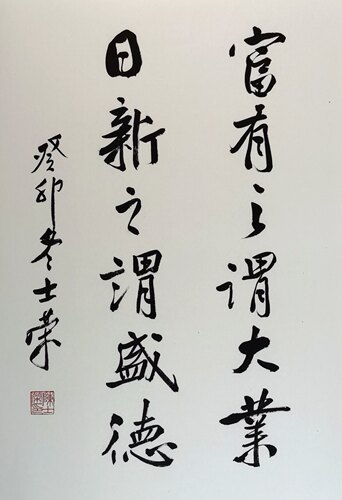 富有之謂大業
日新之謂盛德
癸卯冬士榮